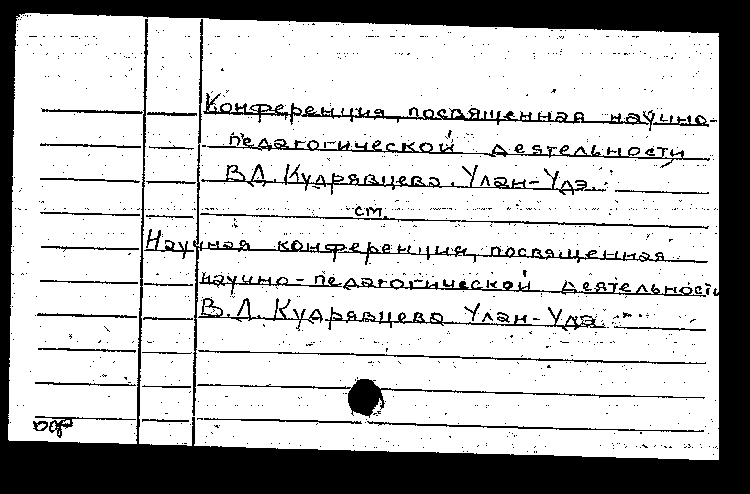 Конференция, посвященная научно-
педагогической деятельности
В.Д. Кудрявцева. Улан-Удэ.
см.
Научная конференция, посвященная
научно-педагогической деятельности
В.Д. Кудрявцева Улан-Удэ